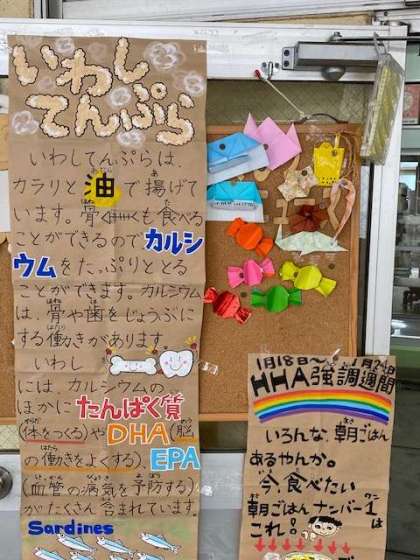 いわし
てんぷら
いわしてんぷらは、
カラリと油で揚げて
います。骨も食べる
ことができるのでカルシ
ウムをたっぷりととる
ことができます。カルシウム
は、骨や歯をじょうぶに
する働きがあります。
いわし
には、カルシウムの
ほかにたんぱく質
(体をつくる)やDHA(脳
の働きをよくする)、EPA
(血管の病気を予防する)
がたくさん含まれています。
Sardines
1月18日〜1月24日
HHA強調週間
いろんな朝ごはん
あるやんか。
今、食べたい
朝ごはんナンバー1は
これ!